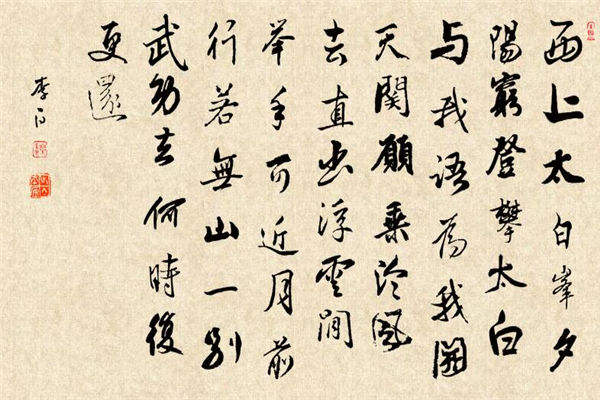 西上太白峯夕
陽窮登攀太白
与我語為我開
天関願乘泠風
去直出浮雲間
举手可近月前
行若無山一别
武功去何時復
更還
李白